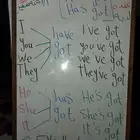 [Has got
I have I've got
you got you've got
we we've got
They They've got
He has He's got
She got She's got
It's got